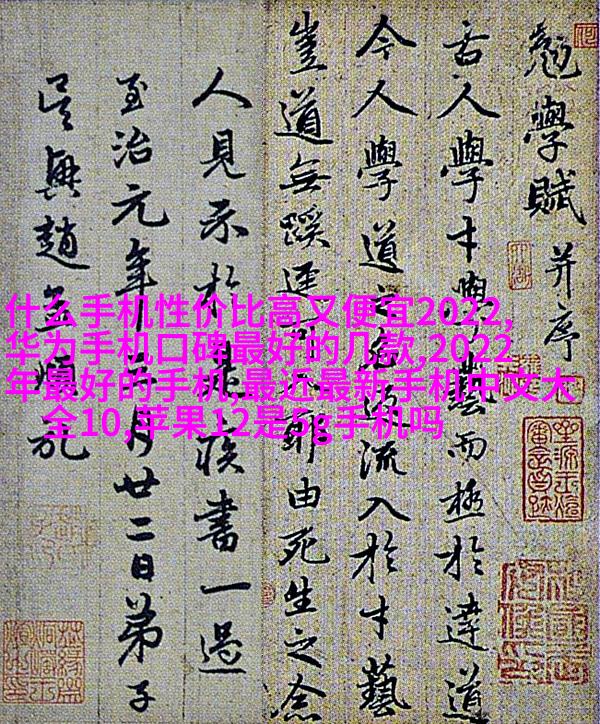 勉學賦并序
古人學才藝而極於達道
今人學道之流入於才藝
豈道無蹊耶由死生之念
人見示於疾書一過
至治元年月廿二日弟子
吳興趙孟頫
什么手机性价比高又便宜2022,
华为手机口碑最好的几款,2022
年最好的手机,最近最新手机中文大
全10,苹果12是5g手机吗